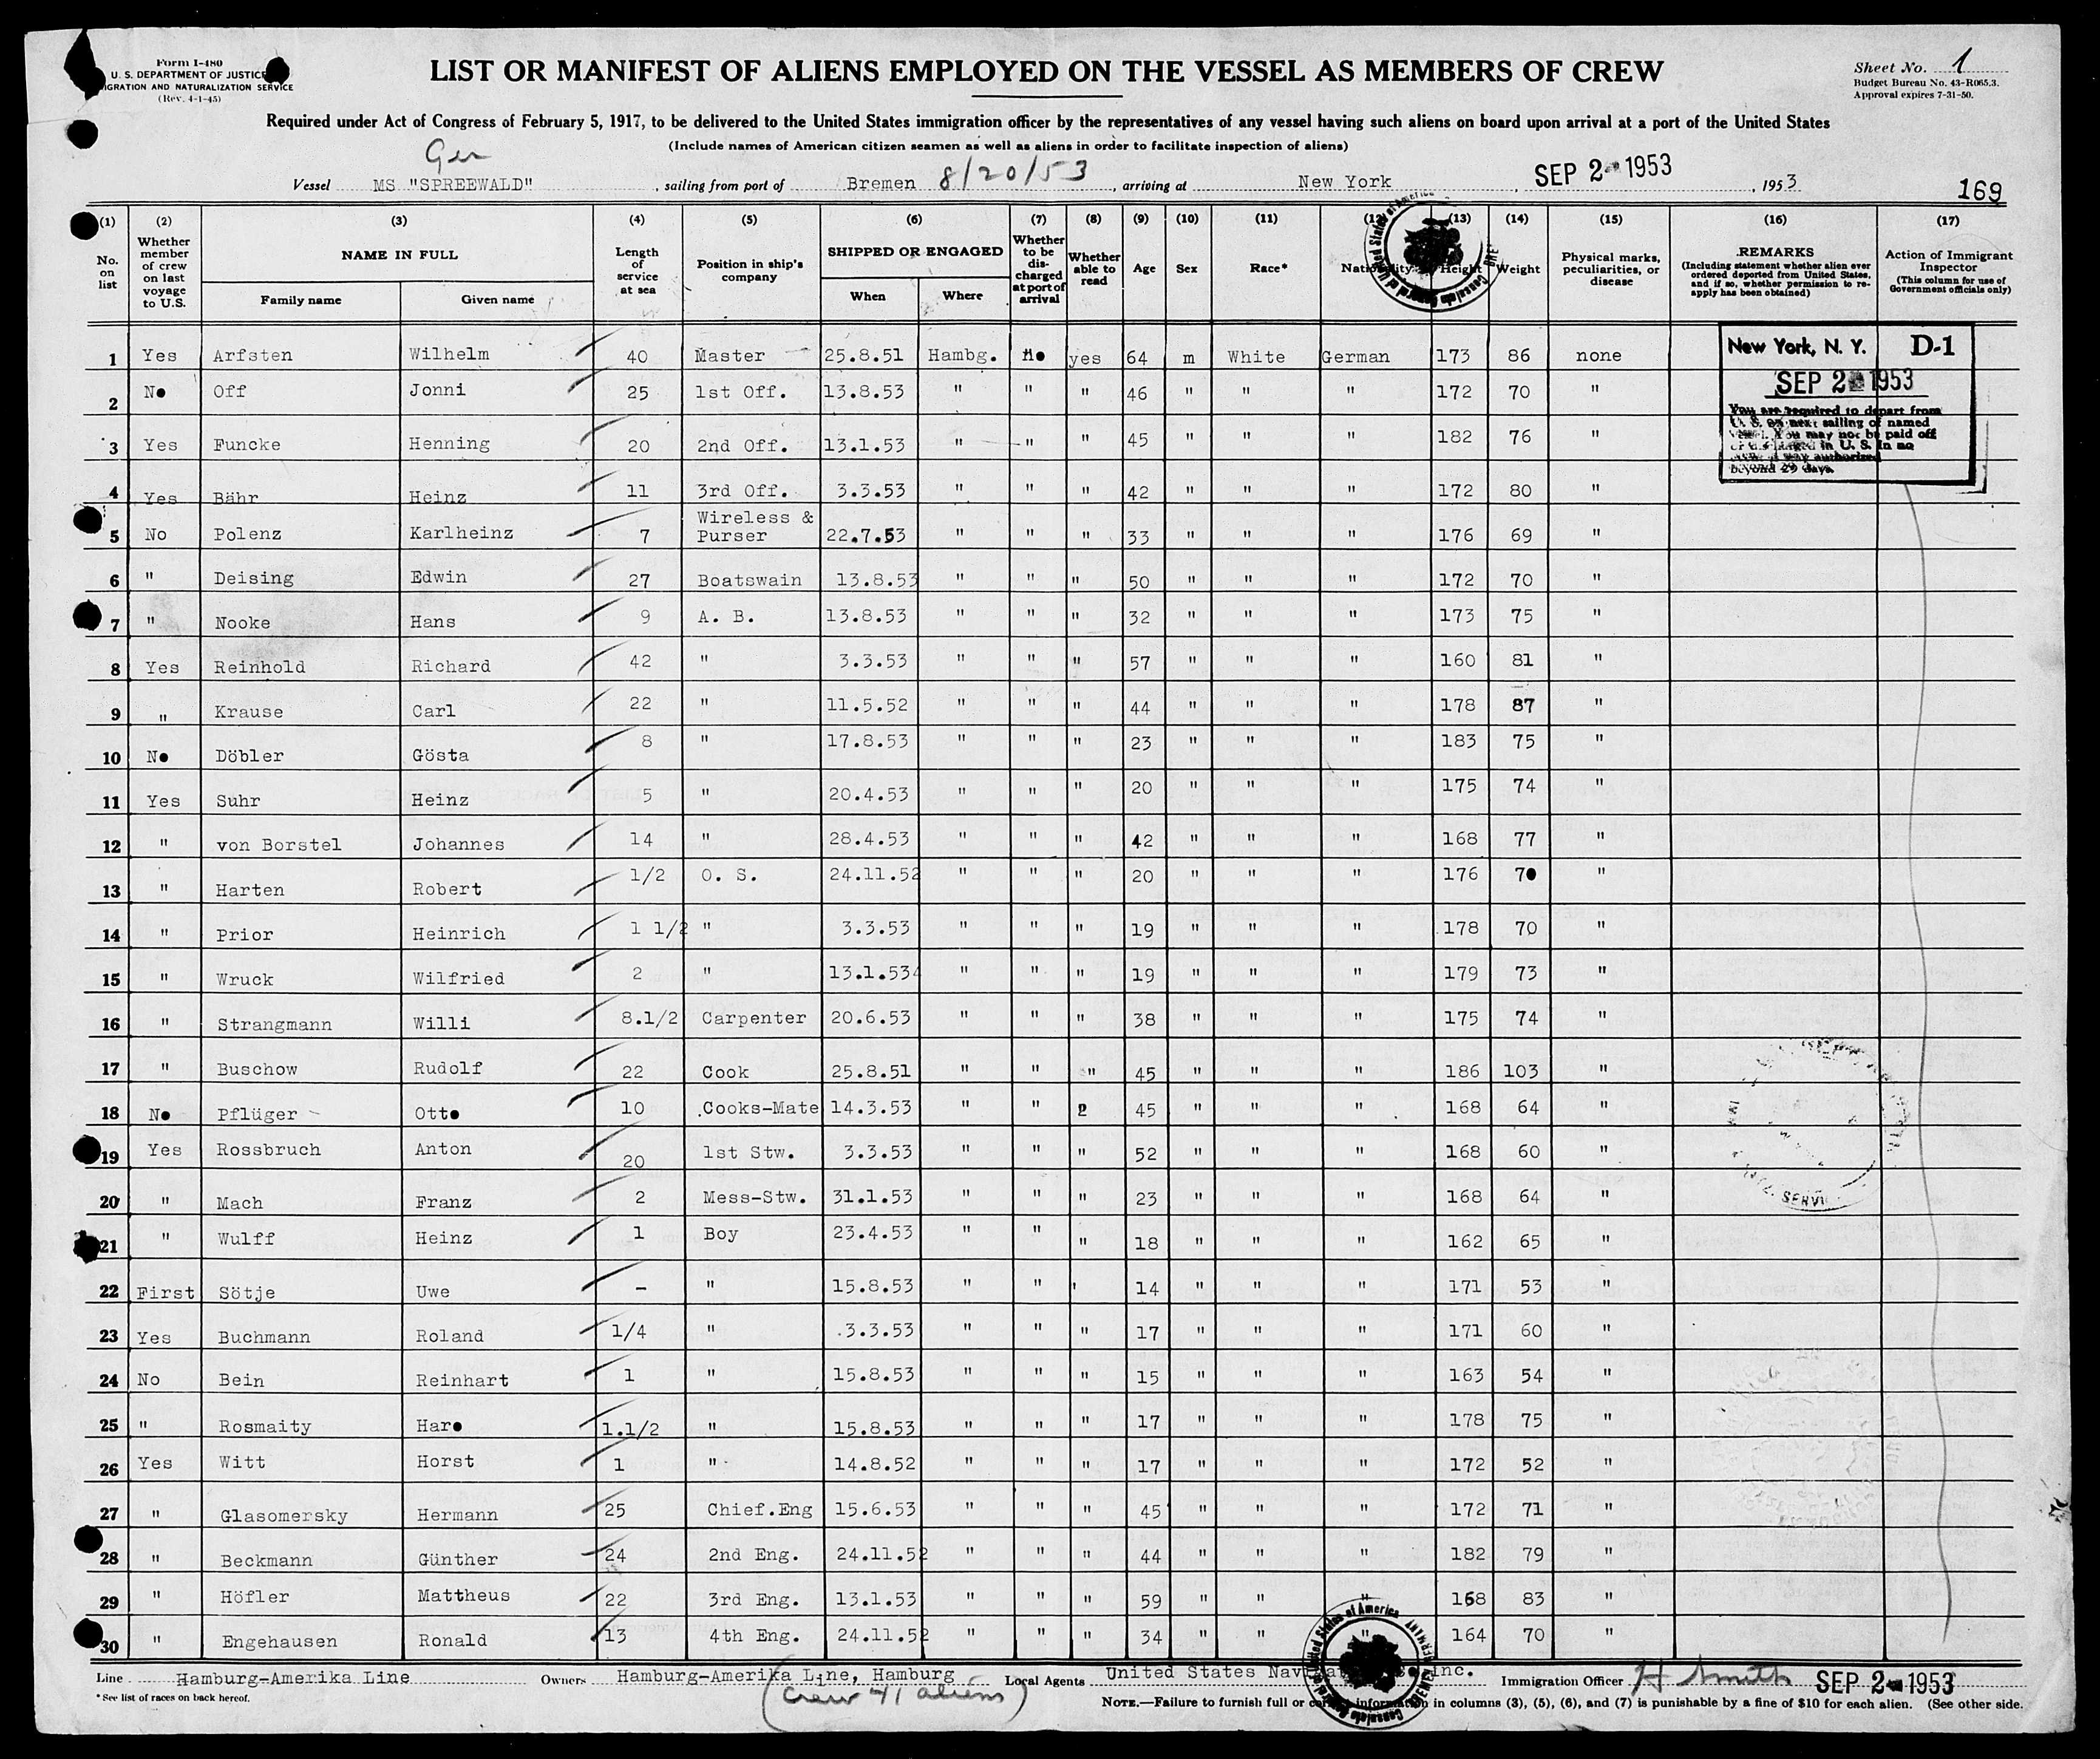 Form I-480
U. S. DEPARTMENT OF JUSTICE
IGRATION AND NATURALIZATION SERVICE
(Rev. 4-1-45)
LIST OR MANIFEST OF ALIENS EMPLOYED ON THE VESSEL AS MEMBERS OF CREW
Sheet No. 1
Budget Bureau No. 43-R065.3.
Approval expires 7-31-50.
Required under Act of Congress of February 5, 1917, to be delivered to the United States immigration officer by the representatives of any vessel having such aliens on board upon arrival at a port of the United States
(Include names of American citizen seamen as well as aliens in order to facilitate inspection of aliens)
Ger
Vessel MS "SPREEWALD" , sailing from port of Bremen 8/20/53 , arriving at New York , SEP 2 - 1953 , 1953
169
(1) (2) (3) (4) (5) (6) (7) (8) (9) (10) (11) (12) (13) (14) (15) (16) (17)
No. on list
Whether member of crew on last voyage to U.S.
NAME IN FULL
Family name Given name
Length of service at sea
Position in ship's company
SHIPPED OR ENGAGED
When Where
Whether to be discharged at port of arrival
Whether able to read
Age Sex Race* Nationality Height Weight
Physical marks, peculiarities, or disease
REMARKS
(Including statement whether alien ever ordered deported from United States, and if so, whether permission to reapply has been obtained)
Action of Immigrant Inspector
(This column for use of Government officials only)
1 Yes Arfsten Wilhelm 40 Master 25.8.51 Hambg. No yes 64 m White German 173 86 none
2 No Off Jonni 25 1st Off. 13.8.53 " " " 46 " " " 172 70 "
3 Yes Funcke Henning 20 2nd Off. 13.1.53 " " " 45 " " " 182 76 "
4 Yes Bähr Heinz 11 3rd Off. 3.3.53 " " " 42 " " " 172 80 "
5 No Polenz Karlheinz 7 Wireless & Purser 22.7.53 " " " 33 " " " 176 69 "
6 " Deising Edwin 27 Boatswain 13.8.53 " " " 50 " " " 172 70 "
7 " Nooke Hans 9 A. B. 13.8.53 " " " 32 " " " 173 75 "
8 Yes Reinhold Richard 42 " 3.3.53 " " " 57 " " " 160 81 "
9 " Krause Carl 22 " 11.5.52 " " " 44 " " " 178 87 "
10 No Döbler Gösta 8 " 17.8.53 " " " 23 " " " 183 75 "
11 Yes Suhr Heinz 5 " 20.4.53 " " " 20 " " " 175 74 "
12 " von Borstel Johannes 14 " 28.4.53 " " " 42 " " " 168 77 "
13 " Harten Robert 1/2 O. S. 24.11.52 " " " 20 " " " 176 70 "
14 " Prior Heinrich 1 1/2 " 3.3.53 " " " 19 " " " 178 70 "
15 " Wruck Wilfried 2 " 13.1.53 " " " 19 " " " 179 73 "
16 " Strangmann Willi 8.1/2 Carpenter 20.6.53 " " " 38 " " " 175 74 "
17 " Buschow Rudolf 22 Cook 25.8.51 " " " 45 " " " 186 103 "
18 No Pflüger Otto 10 Cooks-Mate 14.3.53 " " 2 45 " " " 168 64 "
19 Yes Rossbruch Anton 20 1st Stw. 3.3.53 " " " 52 " " " 168 60 "
20 " Mach Franz 2 Mess-Stw. 31.1.53 " " " 23 " " " 168 64 "
21 " Wulff Heinz 1 Boy 23.4.53 " " " 18 " " " 162 65 "
22 First Sötje Uwe - " 15.8.53 " " ' 14 " " " 171 53 "
23 Yes Buchmann Roland 1/4 " 3.3.53 " " " 17 " " " 171 60 "
24 No Bein Reinhart 1 " 15.8.53 " " " 15 " " " 163 54 "
25 " Rosmaity Haro 1.1/2 " 15.8.53 " " " 17 " " " 178 75 "
26 Yes Witt Horst 1 " 14.8.52 " " " 17 " " " 172 52 "
27 " Glasomersky Hermann 25 Chief.Eng 15.6.53 " " " 45 " " " 172 71 "
28 " Beckmann Günther 24 2nd Eng. 24.11.52 " " " 44 " " " 182 79 "
29 " Höfler Mattheus 22 3rd Eng. 13.1.53 " " " 59 " " " 168 83 "
30 " Engehausen Ronald 13 4th Eng. 24.11.52 " " " 34 " " " 164 70 "
New York, N. Y. D-1
SEP 2 1953
You are required to depart from
U. S. on next sailing of named
vessel. You may not be paid off
in U. S. In no
beyond 29 days.
Line Hamburg-Amerika Line Owners Hamburg-Amerika Line, Hamburg Local Agents United States Nav Inc. Immigration Officer H Smith SEP 2 - 1953
(crew 41 aliens)
* See list of races on back hereof.
NOTE.—Failure to furnish full or correct information in columns (3), (5), (6), and (7) is punishable by a fine of $10 for each alien. (See other side.